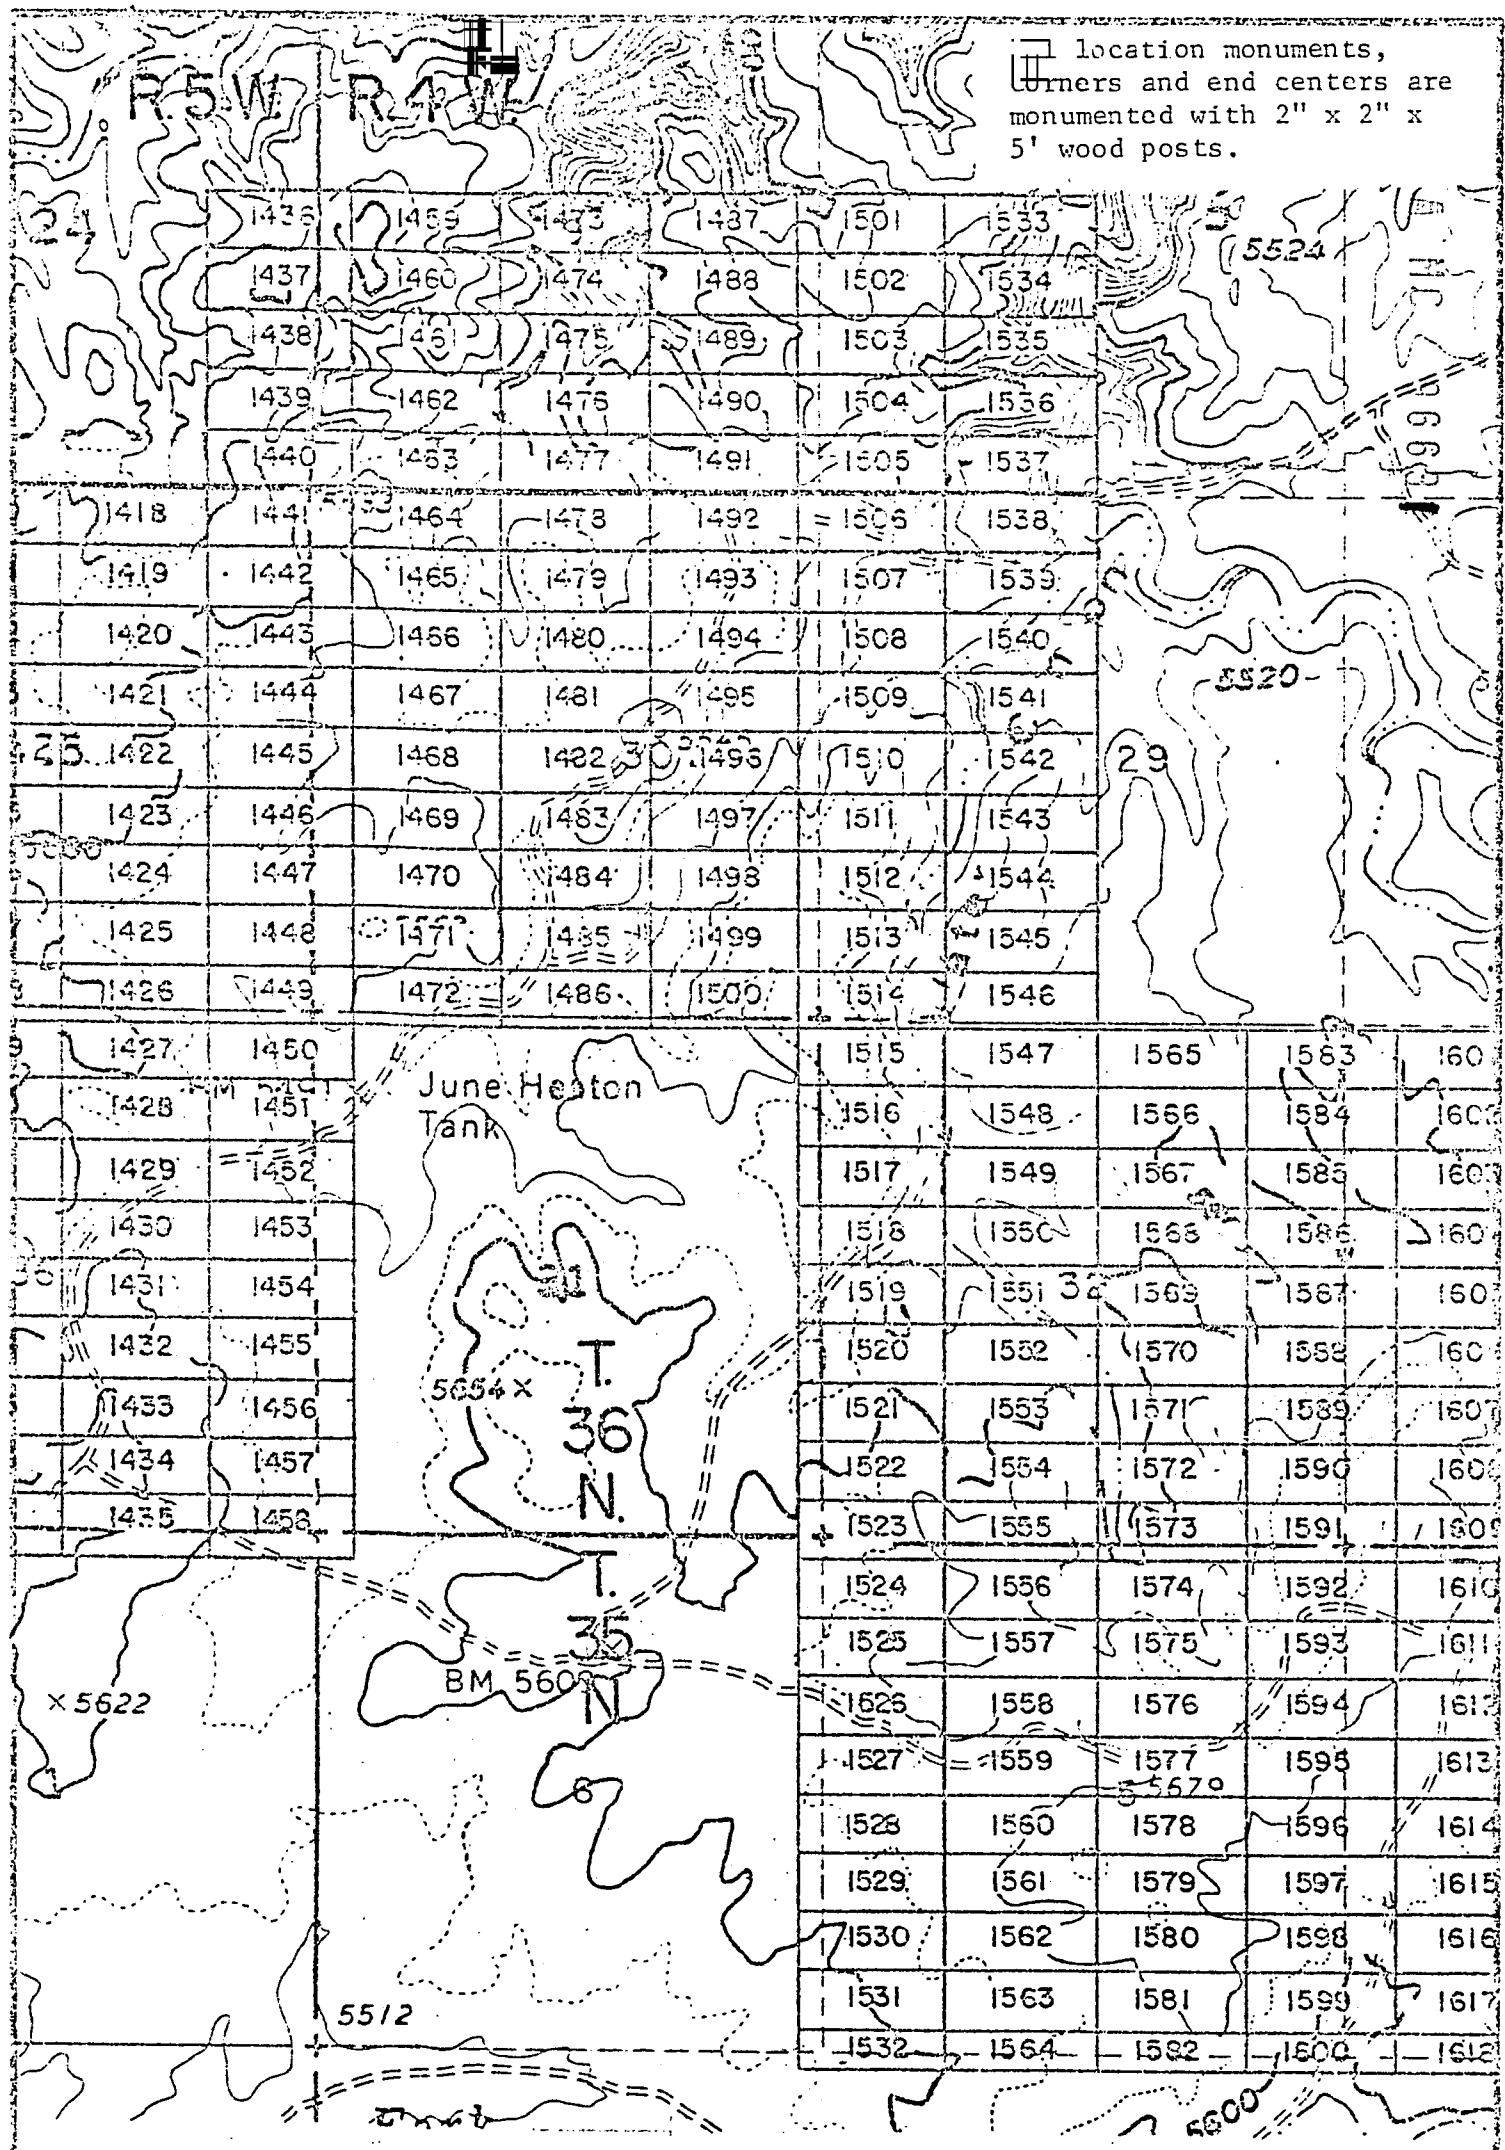 location monuments,
and end centers are
monumented with 2" x 2" x
5' wood posts.
R.5W. R.4W.
24 1436 1459 1473 1487 1501 1533
5524
1437 1460 1474 1488 1502 1534
1438 1461 1475 1489 1503 1535
1439 1462 1476 1490 1504 1536
1440 1463 1477 1491 1505 1537
1418 1441 1464 1478 1492 1506 1538
1419 1442 1465 1479 1493 1507 1539
1420 1443 1466 1480 1494 1508 1540
1421 1444 1467 1481 1495 1509 1541
5520
25 1422 1445 1468 1482 30 1496 1510 1542 29
1423 1446 1469 1483 1497 1511 1543
1424 1447 1470 1484 1498 1512 1544
1425 1448 1471 1485 1499 1513 1545
1426 1449 1472 1486 1500 1514 1546
1427 1450 1515 1547 1565 1583 160
June Heaton
Tank
1428 1451 1516 1548 1566 1584 160
1429 1452 1517 1549 1567 1585 160
1430 1453 1518 1550 1568 1586 160
1431 1454 1519 1551 32 1569 1587 160
1432 1455 1520 1552 1570 1588 160
T.
5654 X
1433 1456 1521 1553 1571 1589 1607
36
1434 1457 1522 1554 1572 1590 160
N.
1435 1458 1523 1555 1573 1591 1609
T.
1524 1556 1574 1592 1610
35
1525 1557 1575 1593 1611
BM 560
N
x 5622
1526 1558 1576 1594 161
1527 1559 1577 1595 1613
6
5679
1528 1560 1578 1596 1614
1529 1561 1579 1597 1615
1530 1562 1580 1598 1616
1531 1563 1581 1599 1617
5512
1532 1564 1582 1600 1618
5600